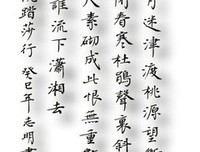 月迷津渡桃源望斷
閉春寒杜鵑聲裏斜
尺素砌成此恨無重
誰流下瀟湘去
踏莎行 癸巳年志明書